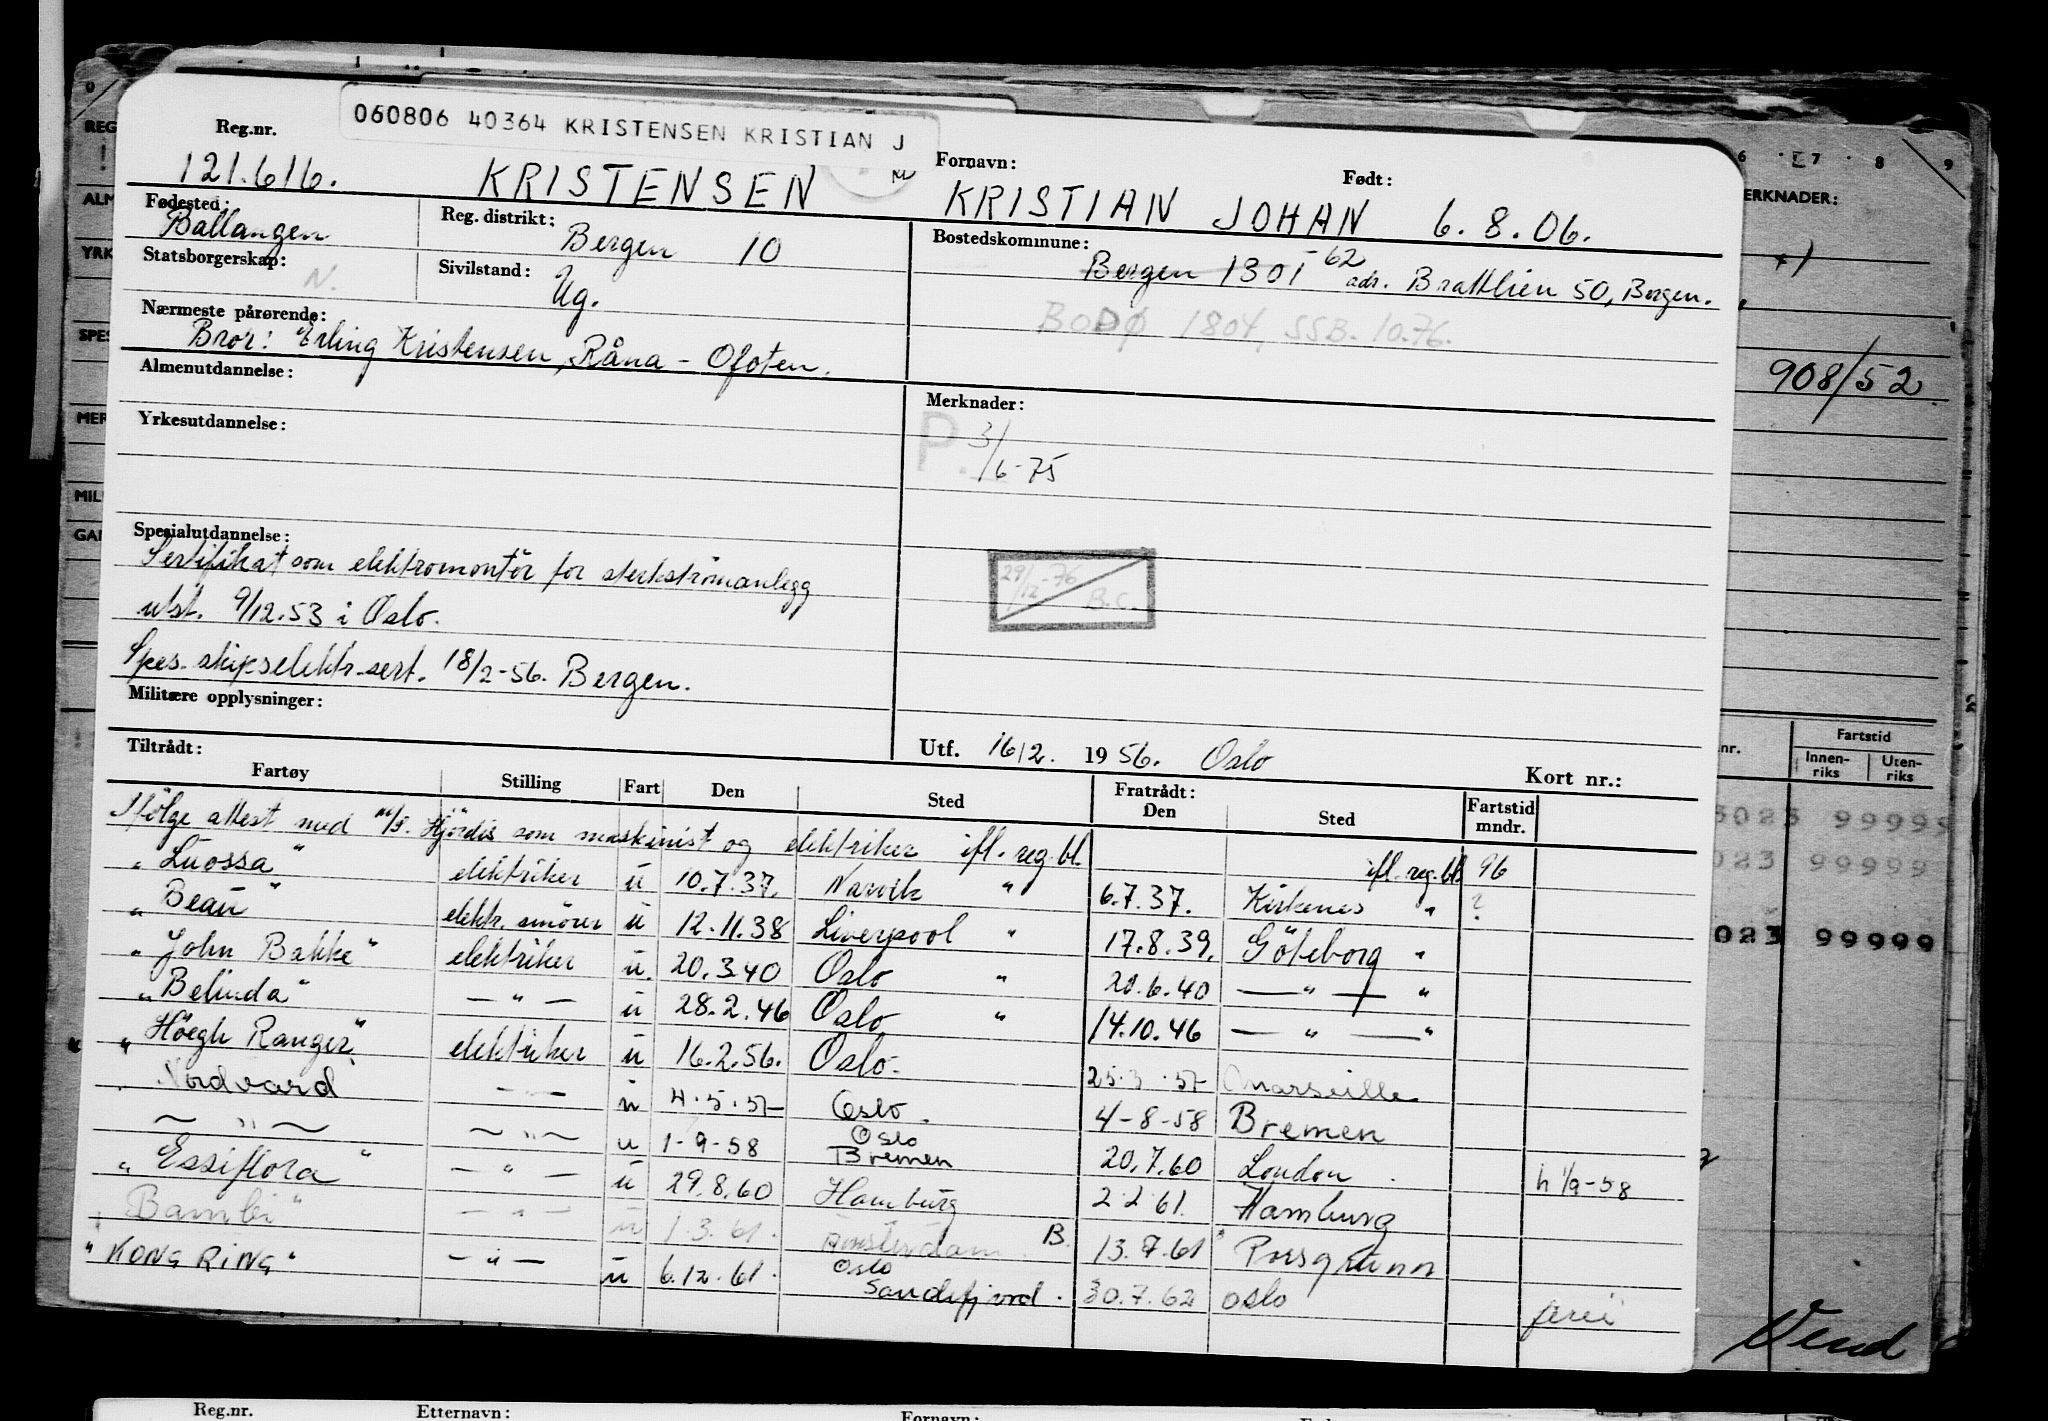 060806 40364 KRISTENSEN KRISTIAN J
Reg.nr. Fornavn: Født:
121.616. KRISTENSEN KRISTIAN JOHAN 6.8.06.
Fødested: Reg. distrikt: Bostedskommune:
Ballangen Bergen 10 Bergen 1301 62 adr. Brattlien 50, Bergen.
Statsborgerskap: Sivilstand:
N. Ug. BODØ 1804, SSB. 10.76.
Nærmeste pårørende:
Bror: Erling Kristensen, Råna - Ofoten.
Almenutdannelse: Merknader:
P. 3/6-75
Yrkesutdannelse:
Spesialutdannelse:
Sertifikat som elektromontör for sterkströmanlegg
29/12-76 B.C.
utst. 9/12.53 i Oslo.
Spes. skipselektr.sert. 18/2-56. Bergen.
Militære opplysninger:
Tiltrådt: Utf. 16/2. 1956. Oslo Kort nr.:
Fartøy Stilling Fart Den Sted Fratrådt: Den Sted Fartstid mndr.
Ifölge attest med M/S. Hjördis som maskinist og elektriker ifl. reg.bl. ifl. reg.bl. 96
"Luossa" elektriker u 10.7.37. Narvik " 6.7.37. Kirkenes " ?
"Beau" elektr. smörer u 12.11.38 Liverpool " 17.8.39. Göteborg "
"John Bakke" elektriker u. 20.3.40 Oslo " 20.6.40 — " — "
"Belinda" — " — u 28.2.46 Oslo " 14.10.46 — " — "
"Höegh Ranger" elektriker u 16.2.56. Oslo. 25.3.57 Marseille
Nordvard — — u 4.5.57 Oslo. 4-8-58 Bremen
~ " ~ ~ " ~ u 1-9-58 Oslo Bremen 20.7.60 London. h 1/9-58
"Essiflora" — " — u 29.8.60 Hamburg 2.2.61. Hamburg
"Bambi" — " — u 1.3.61. Amsterdam. B. 13.7.61 Porsgrunn
"KONG RING" — " — u 6.12.61. Oslo Sandefjord. 30.7.62 Oslo ferie
6 7 8 9
ERKNADER:
908/52.
Fartstid
nr. Innen-riks Uten-riks
5023 99999
023 99999
023 99999
Vend
REG
ALM
YRK
SPES
MER
MIL
GA
Reg.nr. Etternavn: Fornavn: